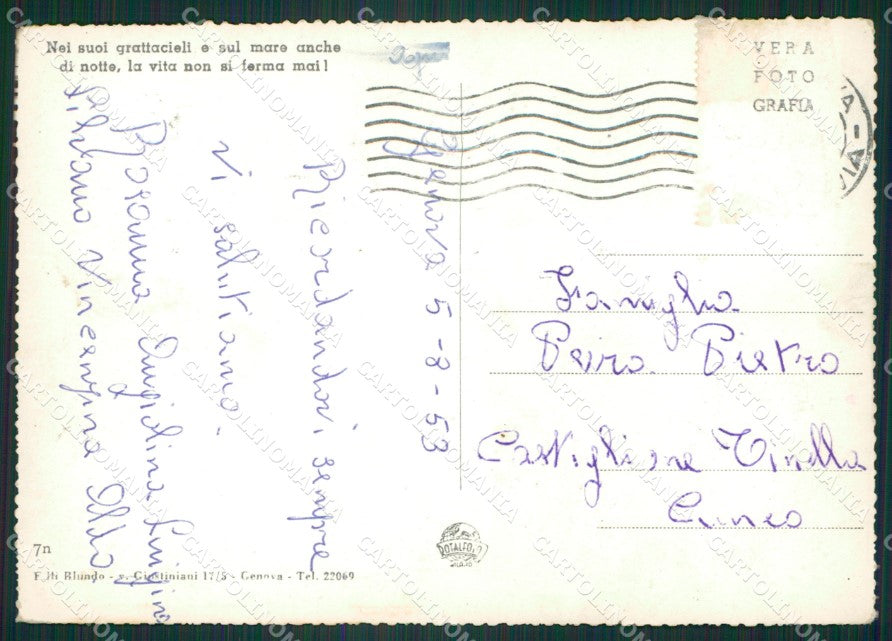 Nei suoi grattacieli e sul mare anche
di notte, la vita non si ferma mai!
VERA
FOTO
GRAFIA
Genova 5-8-53
Ricordandovi sempre
vi salutiamo.
Rosanna Angiolina Luigina
Silvano Vincenzina Aldo
Famiglia
Peiro Pietro
Castiglione Tinella
Cuneo
ROTALFOTO
MILANO
7n
F.lli Blundo - v. Giustiniani 17/5 - Genova - Tel. 22069
CARTOLINOMANIA